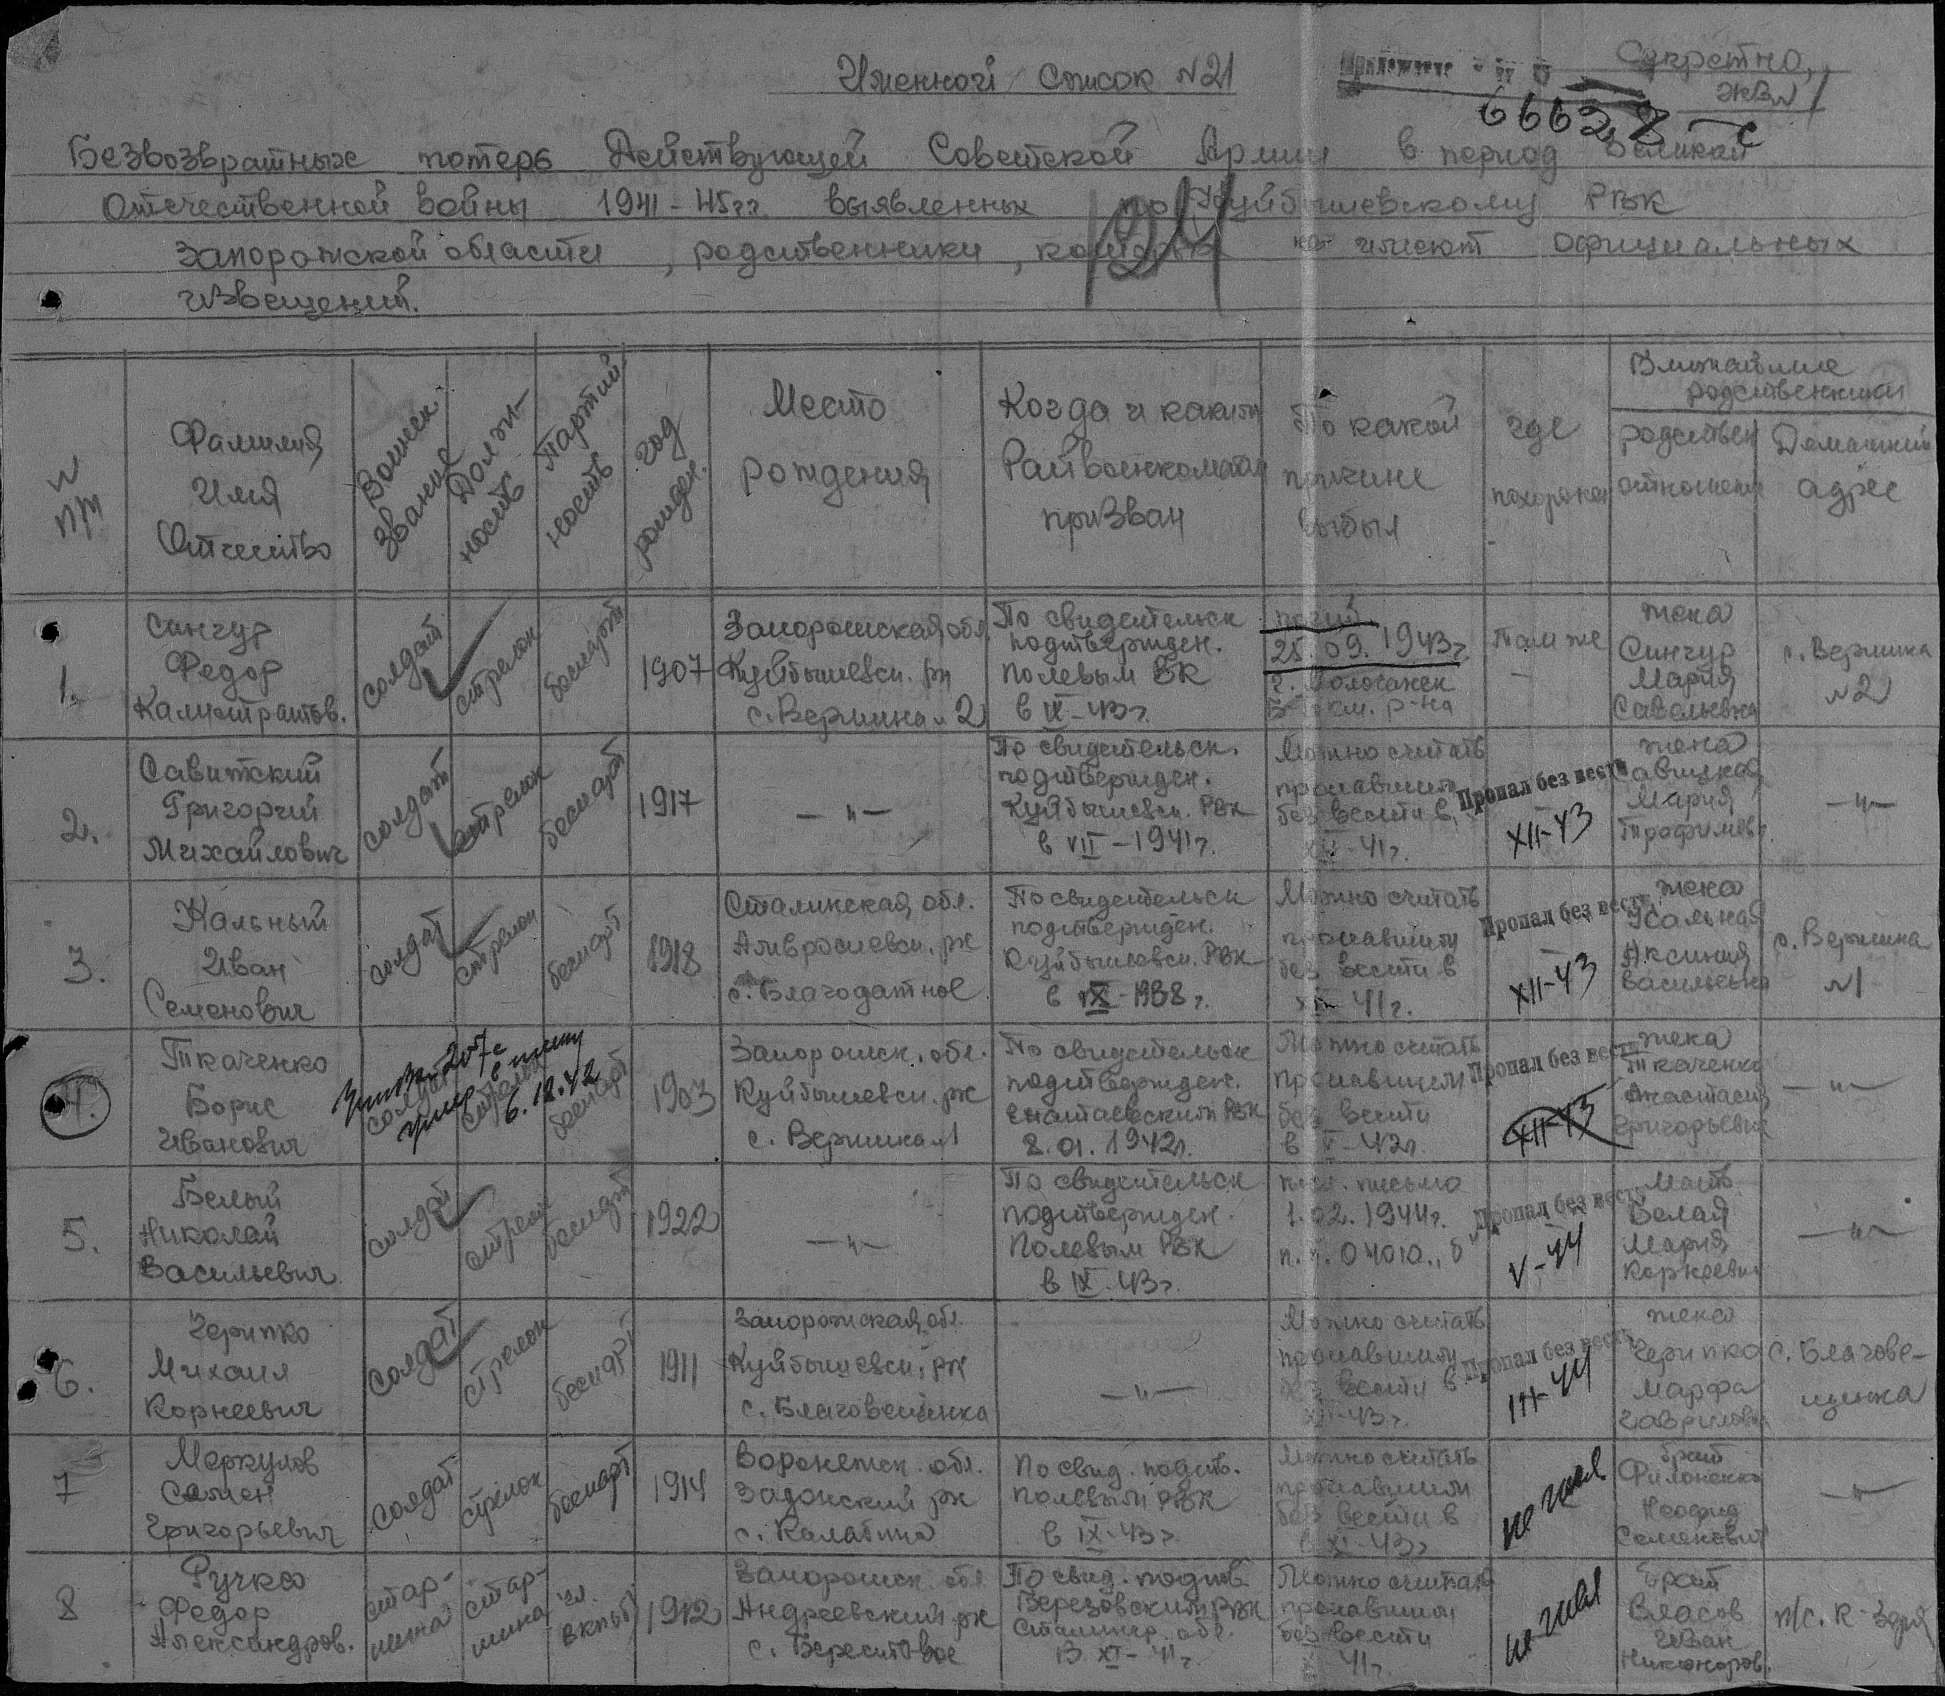 Именной список №21
Секретно,
экз №1
66638 с
Безвозвратных потерь Действующей Советской Армии в период Великой
Отечественной войны 1941-45гг выявленных по Куйбышевскому РВК
Запорожской области, родственники, которых не имеют официальных
извещений.
121
№ п/п
Фамилия
Имя
Отчество
Воинск. звание
Должность
Партийность
год рожден.
Место
рождения
Когда и каким
Райвоенкоматом
призван
По какой
причине
выбыл
где
похоронен
Ближайшие
родственники
родствен
отношение
Домашний
адрес
1.
Сингур
Федор
Калистратов.
солдат
стрелок
беспарт
1907
Запорожская обл.
Куйбышевск. рн
с. Вершина №2
По свидетельск
подтвержден.
Полевым РВК
в IX-43г.
погиб
25.09.1943г.
км. р-на
Там же
жена
Сингур
Мария
Савельевна
с. Вершина
№2
2.
Савитский
Григорий
Михайлович
солдат
стрелок
беспарт
1917
—"—
По свидетельск.
подтвержден.
Куйбышевск. РВК
в VII-1941г.
Можно считать
пропавшим
без вести в
XII-41г.
Пропал без вести
XII-43
жена
Савицкая
Мария
Трофимов.
—"—
3.
Кальный
Иван
Семенович
солдат
стрелок
беспарт
1918
Сталинская обл.
Амвросиевск. рн
с. Благодатное
По свидетельск
подтвержден.
Куйбышевск. РВК
в IX-1938г.
Можно считать
пропавшим
без вести в
XII-41г.
Пропал без вести
XII-43
жена
Кальная
Аксиния
Васильевна
с. Вершина
№1
4.
Ткаченко
Борис
Иванович
солдат
стрелок
беспарт
умер в плену
6.12.42
1903
Запорожск. обл.
Куйбышевск. рн
с. Вершина №1
По свидетельск
подтвержден.
РВК
8.01.1942г.
Можно считать
пропавшим
без вести
в V-42г
Пропал без вести
XII-43
жена
Ткаченко
Анастасия
Григорьевн
—"—
5.
Белый
Николай
Васильевич
солдат
стрелок
беспарт
1922
—"—
По свидетельск
подтвержден.
Полевым РВК
в IX-43г.
письмо
1.02.1944г.
п.п. 04010 "б"
Пропал без вести
V-44
Мать
Белая
Мария
Корнеевн
—"—
6.
Черипко
Михаил
Корнеевич
солдат
стрелок
беспарт
1911
Запорожская обл.
Куйбышевск. рн
с. Благовещенка
—"—
Можно считать
пропавшим
без вести в
XII-43г.
Пропал без вести
III-44
жена
Черипко
Марфа
Гавриловн
с. Благове-
щенка
7
Меркулов
Семен
Григорьевич
солдат
стрелок
беспарт
1914
Воронежск. обл.
Задонский рн
с. Калабино
По свид. подтв.
полевым РВК
в IX-43г.
Можно считать
пропавшим
без вести в
XI-43г
брат
Филоненко
Семенович
—"—
8
Ручка
Федор
Александров.
стар-
шина
стар-
шина
чл.
ВКП(б)
1912
Запорожск. обл
Андреевский рн
с. Берестовое
По свид. подтв
Березовским РВК
Сталингр. обл.
в XI-41г.
Можно считать
пропавшим
без вести
41г.
брат
Власов
Иван
Никаноров.